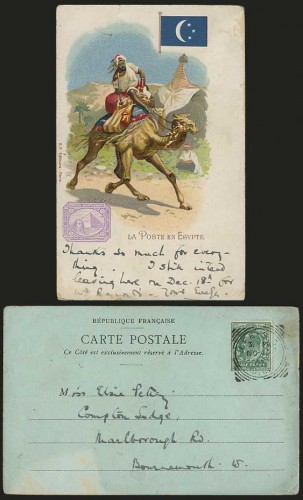 LA POSTE EN EGYPTE
Thanks so much for every-
thing. I still intend
leaving here on Dec. 18th for
RÉPUBLIQUE FRANÇAISE
CARTE POSTALE
Ce Côté est exclusivement réservé à l'Adresse.
Miss Elsie
Compton Lodge,
Marlborough Rd.
Bournemouth. W.